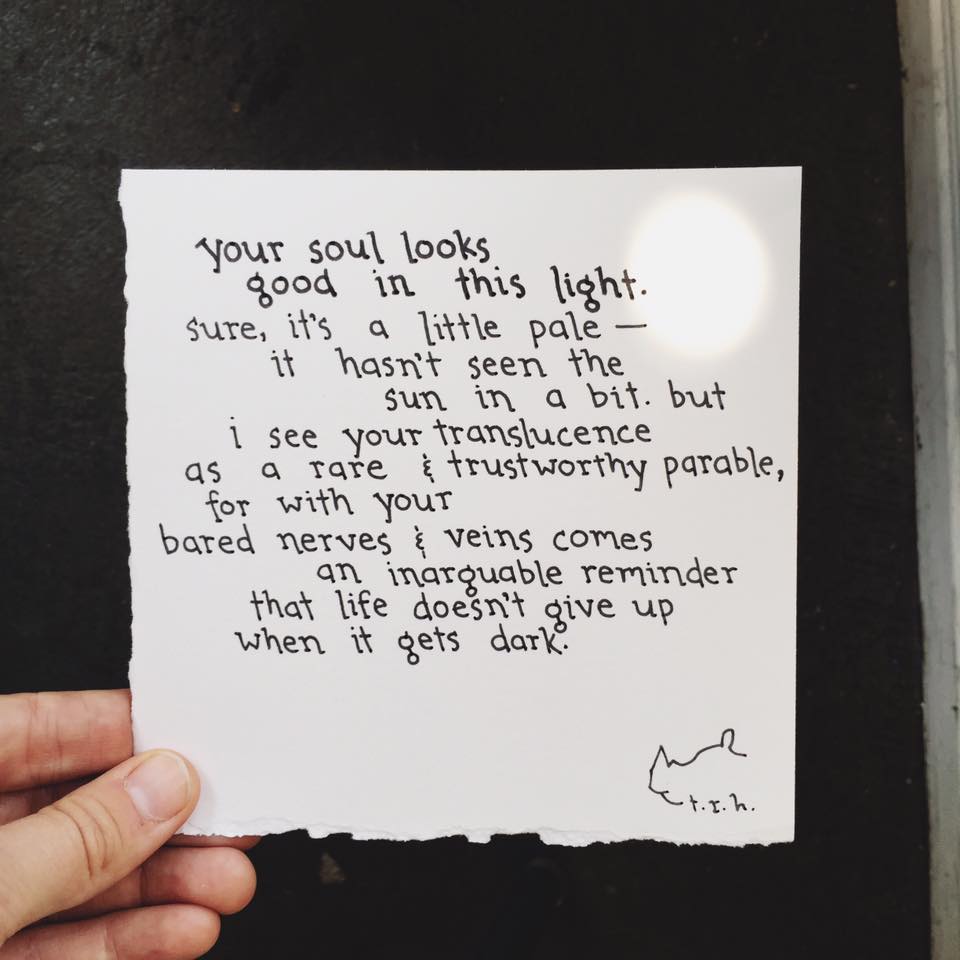 your soul looks
good in this light.
sure, it's a little pale —
it hasn't seen the
sun in a bit. but
i see your translucence
as a rare & trustworthy parable,
for with your
bared nerves & veins comes
an inarguable reminder
that life doesn't give up
when it gets dark.
t.r.h.